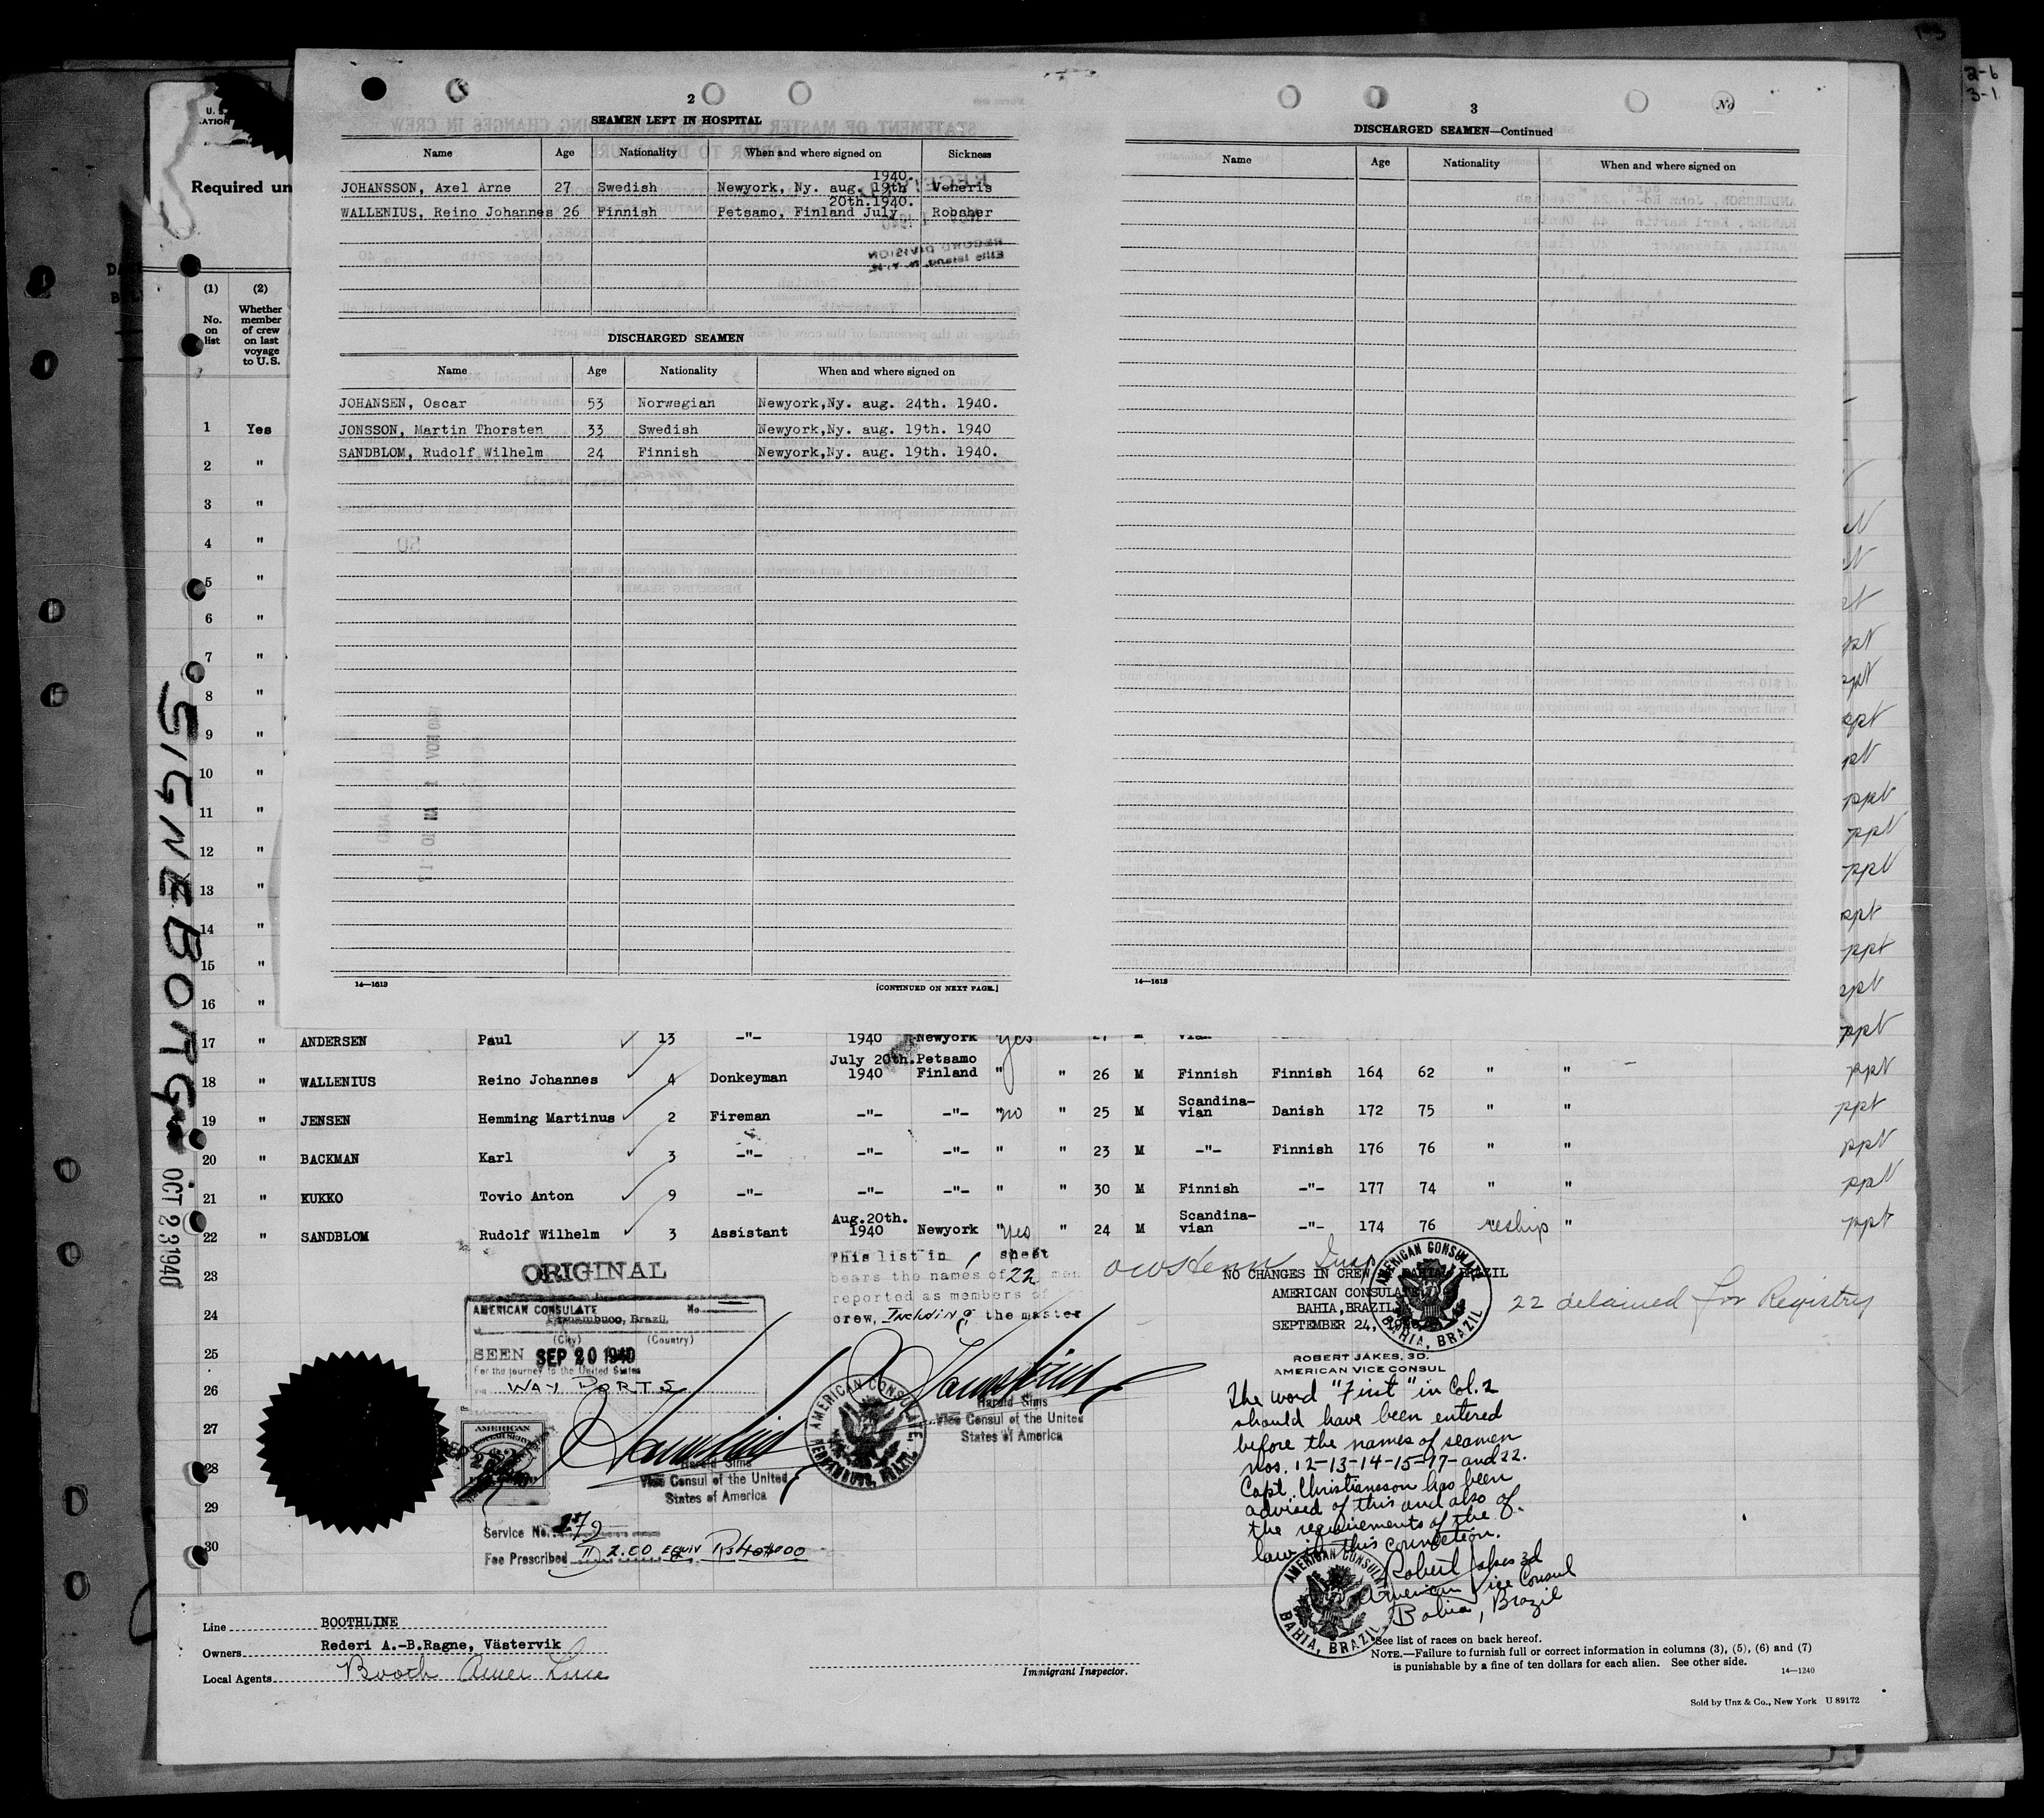 2
SEAMEN LEFT IN HOSPITAL
Name Age Nationality When and where signed on Sickness
JOHANSSON, Axel Arne 27 Swedish Newyork, Ny. aug. 19th 1940. Veneris
WALLENIUS, Reino Johannes 26 Finnish Petsamo, Finland July 20th.1940. Robsher
DISCHARGED SEAMEN
Name Age Nationality When and where signed on
JOHANSEN, Oscar 53 Norwegian Newyork,Ny. aug. 24th. 1940.
JONSSON, Martin Thorsten 33 Swedish Newyork,Ny. aug. 19th. 1940
SANDBLOM, Rudolf Wilhelm 24 Finnish Newyork,Ny. aug. 19th. 1940.
14—1613
[CONTINUED ON NEXT PAGE.]
3
No
DISCHARGED SEAMEN—Continued
Name Age Nationality When and where signed on
14—1613
2-6
3-1
U. S.
Required un
(1) (2)
No. on list
Whether member of crew on last voyage to U. S.
1 Yes
2 "
3 "
4 "
5 "
6 "
7 "
8 "
9 "
10 "
11 "
12 "
13 "
14 "
15 "
16 "
17 " ANDERSEN Paul 13 -"- 1940 Newyork yes M vian ppt
18 " WALLENIUS Reino Johannes 4 Donkeyman July 20th. 1940 Petsamo Finland " " 26 M Finnish Finnish 164 62 " " ppt
19 " JENSEN Hemming Martinus 2 Fireman -"- -"- "no " 25 M Scandina-vian Danish 172 75 " " ppt
20 " BACKMAN Karl 3 -"- -"- -"- " " 23 M -"- Finnish 176 76 " " ppt
21 " KUKKO Tovio Anton 9 -"- -"- -"- " " 30 M Finnish -"- 177 74 " " ppt
22 " SANDBLOM Rudolf Wilhelm 3 Assistant Aug.20th. 1940 Newyork "yes " 24 M Scandina-vian -"- 174 76 reship " ppt
23
24
25
26
27
28
29
30
SIGNEBORG
OCT 23 1940
ORIGINAL
This list in 1 sheet
bears the names of 22 men
reported as members of
crew, Including the master
AMERICAN CONSULATE No.
Pernambuco, Brazil
(City) (Country)
SEEN SEP 20 1940
For the journey to the United States
via WAY PORTS
Harold Sims
Vice Consul of the United
States of America
AMERICAN CONSULATE
PERNAMBUCO, BRAZIL
Harold Sims
Vice Consul of the United
States of America
Service No. 272
Fee Prescribed 11 2.00 EQUIV Rs 40$000
NO CHANGES IN CREW BAHIA, BRAZIL
AMERICAN CONSULATE
BAHIA, BRAZIL
SEPTEMBER 24, 1940
AMERICAN CONSULATE
BAHIA, BRAZIL
22 detained for Registry
ROBERT JAKES, 3D.
AMERICAN VICE CONSUL
The word "First" in Col. 2
should have been entered
before the names of seamen
nos. 12-13-14-15-17- and 22.
Capt. Christiansson has been
advised of this and also of
the requirements of the
law in this connection.
Robert Jakes 3d
American Vice Consul
Bahia, Brazil
AMERICAN CONSULATE
BAHIA, BRAZIL
Line BOOTHLINE
Owners Rederi A.-B.Ragne, Västervik
Local Agents Booth Amer Line
Immigrant Inspector.
*See list of races on back hereof.
NOTE.—Failure to furnish full or correct information in columns (3), (5), (6) and (7)
is punishable by a fine of ten dollars for each alien. See other side.
14—1240
Sold by Unz & Co., New York U 89172